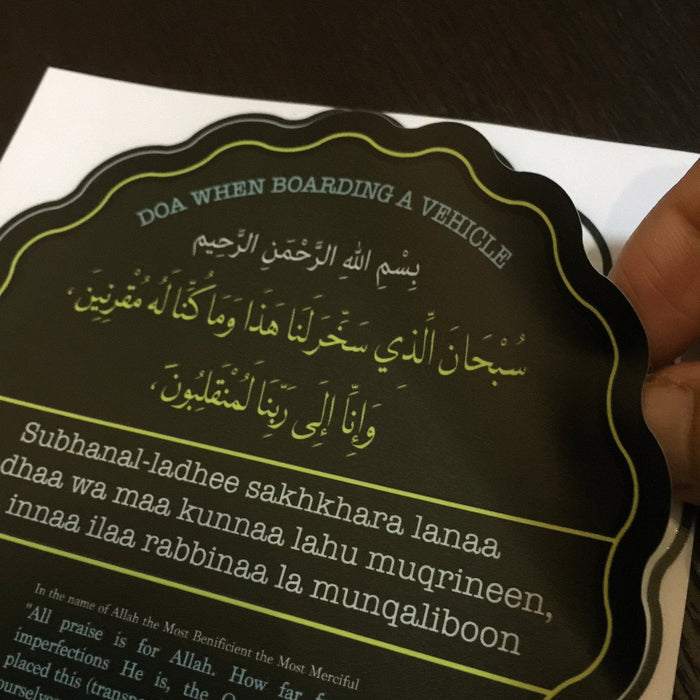 DOA WHEN BOARDING A VEHICLE
بِسْمِ اللهِ الرَّحْمَنِ الرَّحِيمِ
سُبْحَانَ الَّذِي سَخَّرَ لَنَا هَذَا وَمَا كُنَّا لَهُ مُقْرِنِينَ،
وَإِنَّا إِلَى رَبِّنَا لَمُنْقَلِبُونَ،
Subhanal-ladhee sakhkhara lanaa
dhaa wa maa kunnaa lahu muqrineen,
innaa ilaa rabbinaa la munqaliboon
In the name of Allah the Most Benificient the Most Merciful
"All praise is for Allah. How far
imperfections He is, the
placed this